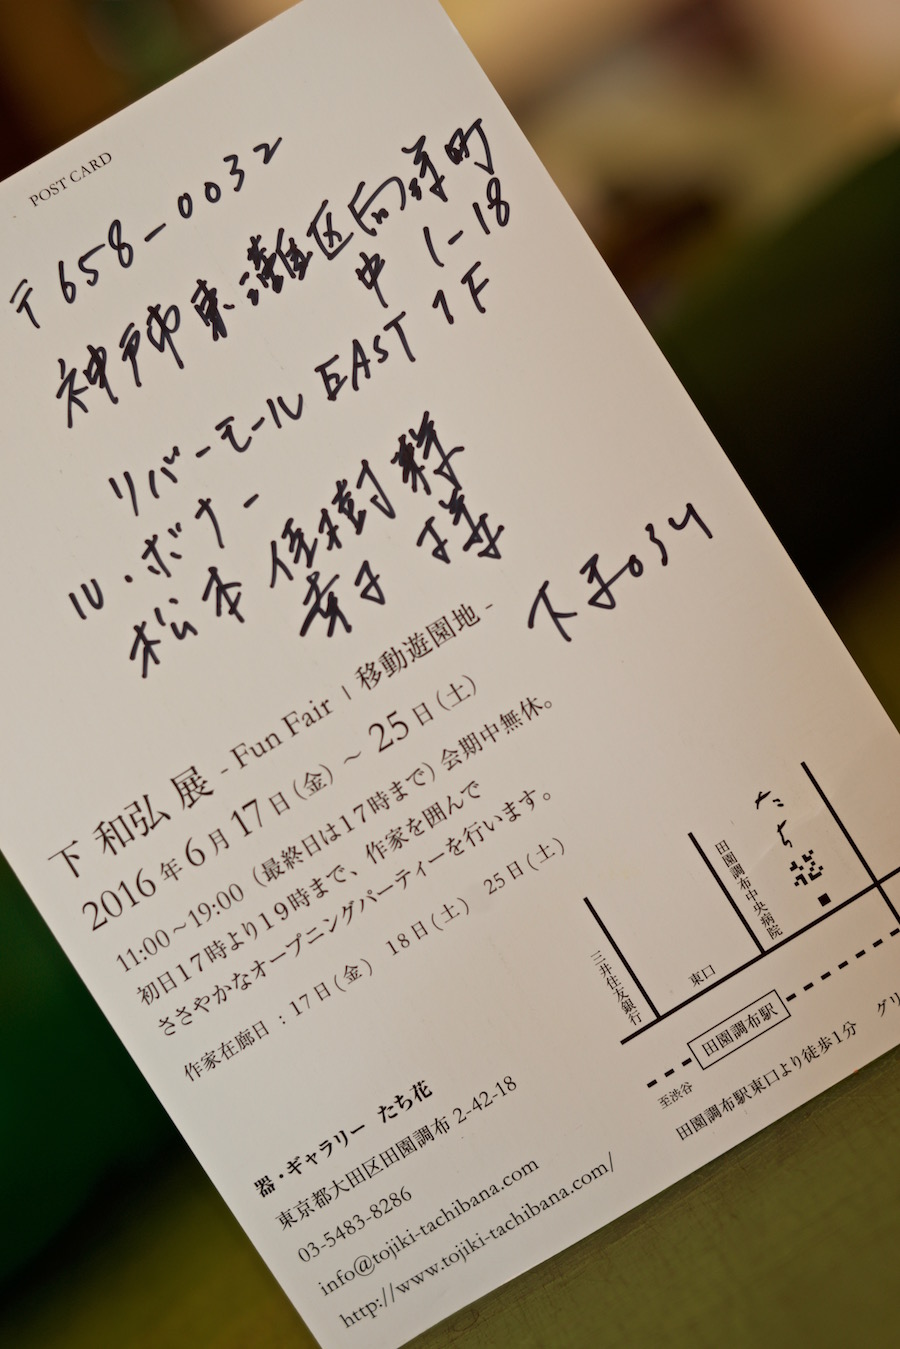 POST CARD
〒658-0032
神戸市東灘区向洋町
中 1-18
リバーモール EAST 1F
ル・ボナー
松本 佳樹 様
幸子 様
下 和弘 展 - Fun Fair | 移動遊園地 -
2016年6月17日(金)～25日(土)
11:00～19:00（最終日は17時まで）会期中無休。
初日17時より19時まで、作家を囲んで
ささやかなオープニングパーティーを行います。
作家在廊日：17日(金) 18日(土) 25日(土)
器・ギャラリー たち花
東京都大田区田園調布 2-42-18
03-5483-8286
info@tojiki-tachibana.com
http://www.tojiki-tachibana.com/
三井住友銀行
東口
田園調布中央病院
たち花
田園調布駅
至渋谷
田園調布駅東口より徒歩1分 グリ